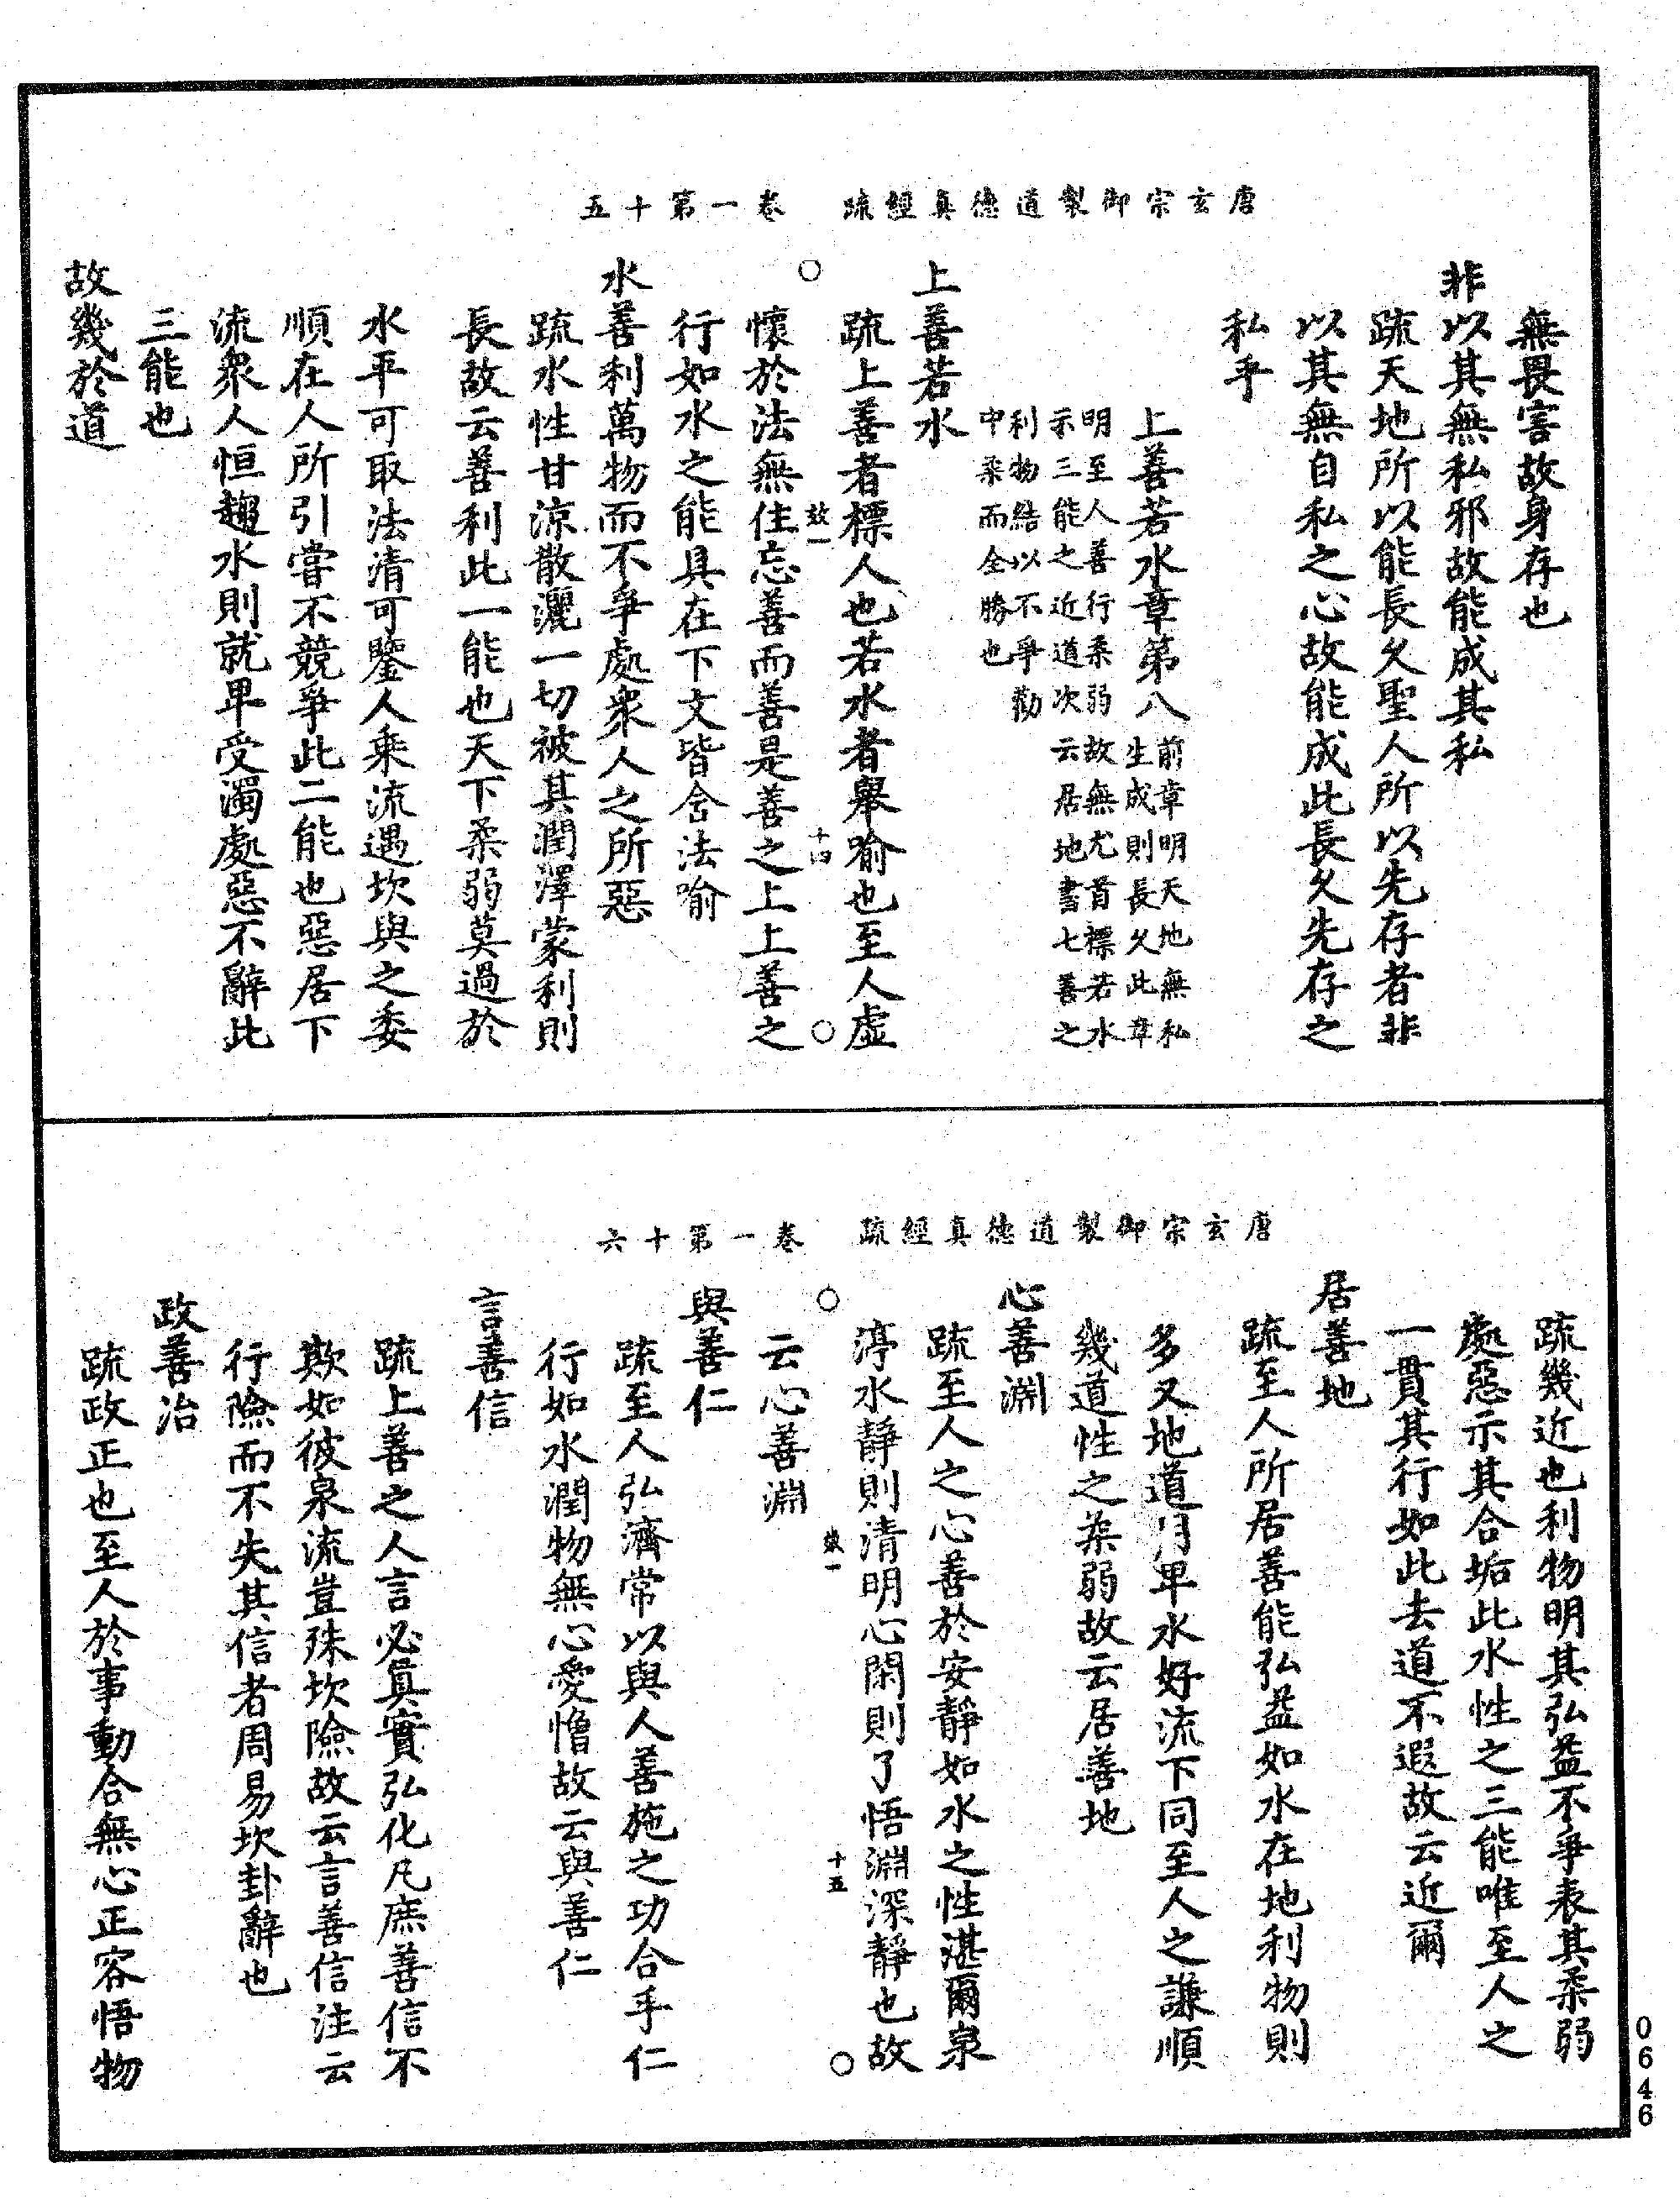 唐玄宗御製道德真經疏　卷一第十五
無畏害故身存也
非以其無私邪故能成其私
疏天地所以能長久聖人所以先存者非
以其無自私之心故能成此長久先存之
私乎
上善若水章第八前章明天地無私
生成則長久此章
明至人善行柔弱故無尤首標若水
示三能之近道次云居地書七善之
利物結以不爭勸
中柔而全勝也
上善若水
疏上善者標人也若水者舉喻也至人虛
效一　十四
懷於法無住忘善而善是善之上上善之
行如水之能具在下文皆含法喻
水善利萬物而不爭處衆人之所惡
疏水性甘涼散灑一切被其潤澤蒙利則
長故云善利此一能也天下柔弱莫過於
水平可取法清可鑒人乘流遇坎與之委
順在人所引嘗不競爭此二能也惡居下
流衆人恒趨水則就卑受濁處惡不辭此
三能也
故幾於道
唐玄宗御製道德真經疏　卷一第十六
疏幾近也利物明其弘益不爭表其柔弱
處惡示其合垢此水性之三能唯至人之
一貫其行如此去道不遐故云近爾
居善地
疏至人所居善能弘益如水在地利物則
多又地道用卑水好流下同至人之謙順
幾道性之柔弱故云居善地
心善淵
疏至人之心善於安靜如水之性湛爾泉
渟水靜則清明心閑則了悟淵深靜也故
效一　十五
云心善淵
與善仁
疏至人弘濟常以與人善施之功合乎仁
行如水潤物無心愛憎故云與善仁
言善信
疏上善之人言必真實弘化凡庶善信不
欺如彼泉流豈殊坎險故云言善信注云
行險而不失其信者周易坎卦辭也
政善治
疏政正也至人於事動合無心正容悟物
0646